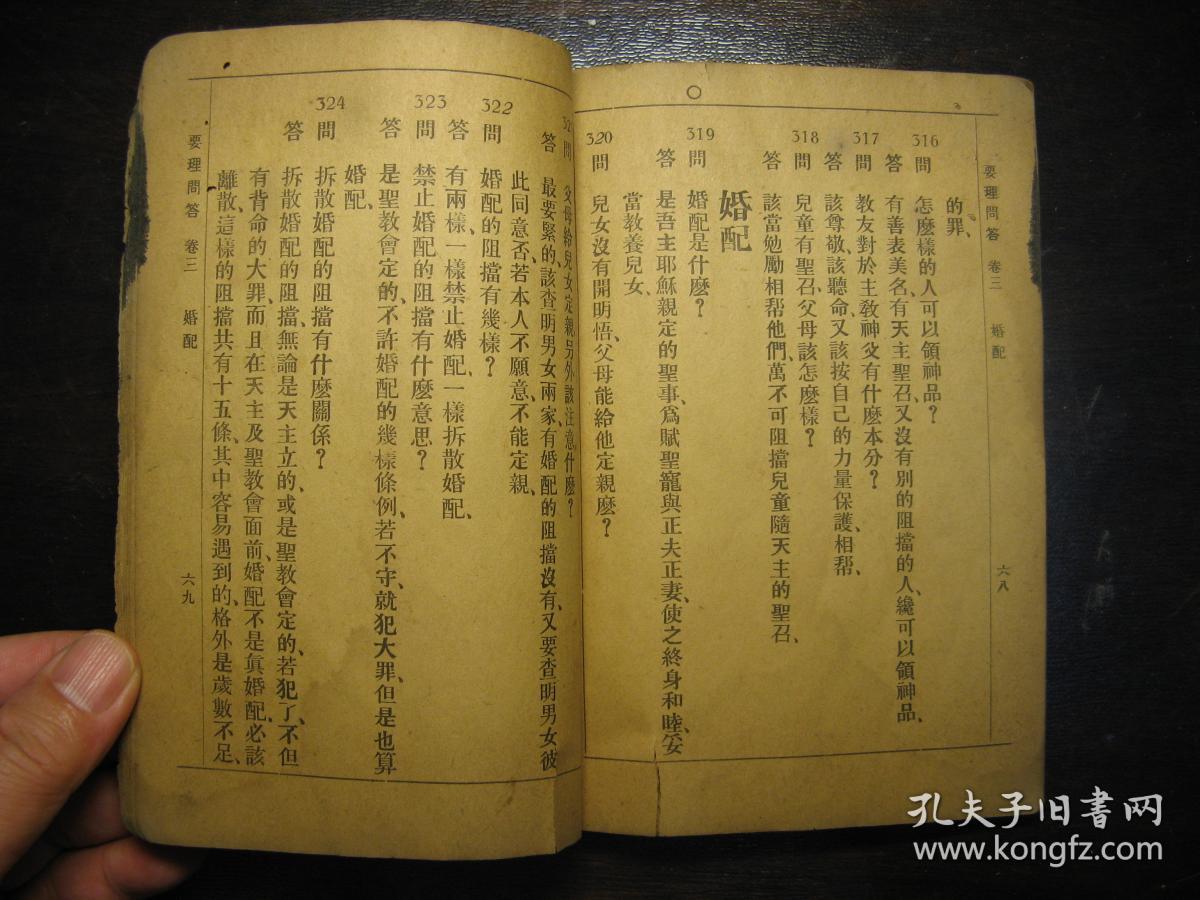 要理問答 卷三 婚配 六八
的罪、
316 問 怎麽樣的人可以領神品？
答 有善表美名、有天主聖召、又沒有別的阻擋的人、纔可以領神品、
317 問 教友對於主教神父有什麽本分？
答 該尊敬、該聽命、又該按自己的力量保護、相帮、
318 問 兒童有聖召、父母該怎麽樣？
答 該當勉勵相帮他們、萬不可阻擋兒童隨天主的聖召、
婚配
319 問 婚配是什麽？
答 是吾主耶穌親定的聖事、爲賦聖寵與正夫正妻、使之終身和睦、妥
當教養兒女、
320 問 兒女沒有開明悟、父母能給他定親麽？
問 父母給兒女定親、另外該注意什麽？
答 最要緊的、該查明男女兩家、有婚配的阻擋沒有、又要查明男女彼
此同意否、若本人不願意、不能定親、
322 問 婚配的阻擋有幾樣？
答 有兩樣、一樣禁止婚配、一樣拆散婚配、
323 問 禁止婚配的阻擋有什麽意思？
答 是聖教會定的、不許婚配的幾樣條例、若不守、就犯大罪、但是也算
婚配、
324 問 拆散婚配的阻擋有什麽關係？
答 拆散婚配的阻擋、無論是天主立的、或是聖教會定的、若犯了、不但
有背命的大罪、而且在天主及聖教會面前、婚配不是眞婚配、必該
離散、這樣的阻擋共有十五條、其中容易遇到的、格外是歲數不足、
要理問答 卷三 婚配 六九
孔夫子旧书网
www.kongfz.com